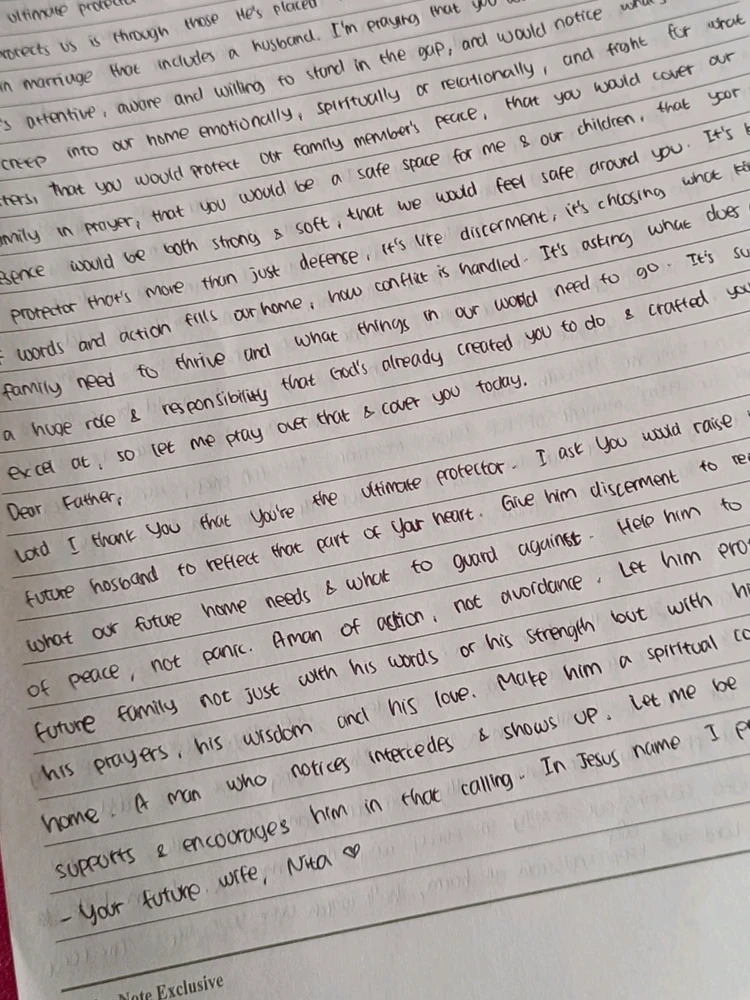 ultimate protector
protects us is through those He's placed
in marriage that includes a husband. I'm praying that you
's attentive, aware and willing to stand in the gap, and would notice
creep into our home emotionally, spiritually or relationally, and fight for what
ters, that you would protect our family member's peace, that you would cover our
mily in prayer, that you would be a safe space for me & our children, that your
sence would be both strong & soft, that we would feel safe around you. It's
protector that's more than just defense, it's like discerment, it's choosing what
words and action fills our home, how conflict is handled. It's asking what does
family need to thrive and what things in our world need to go. It's
a huge role & responsibility that God's already created you to do & crafted you
excel at, so let me pray over that & cover you today.
Dear Father,
Lord I thank You that You're the ultimate protector. I ask You would raise
future hosband to reflect that part of Your heart. Give him discerment to
what our future home needs & what to guard against. Help him to
of peace, not panic. A man of action, not avordance. Let him
future family not just with his words or his strength but with
his prayers, his wisdom and his love. Make him a spiritual
home. A man who notices intercedes & shows up. Let me be
supports & encourages him in that calling. In Jesus name I
- Your future wife, Nita ♡
Note Exclusive